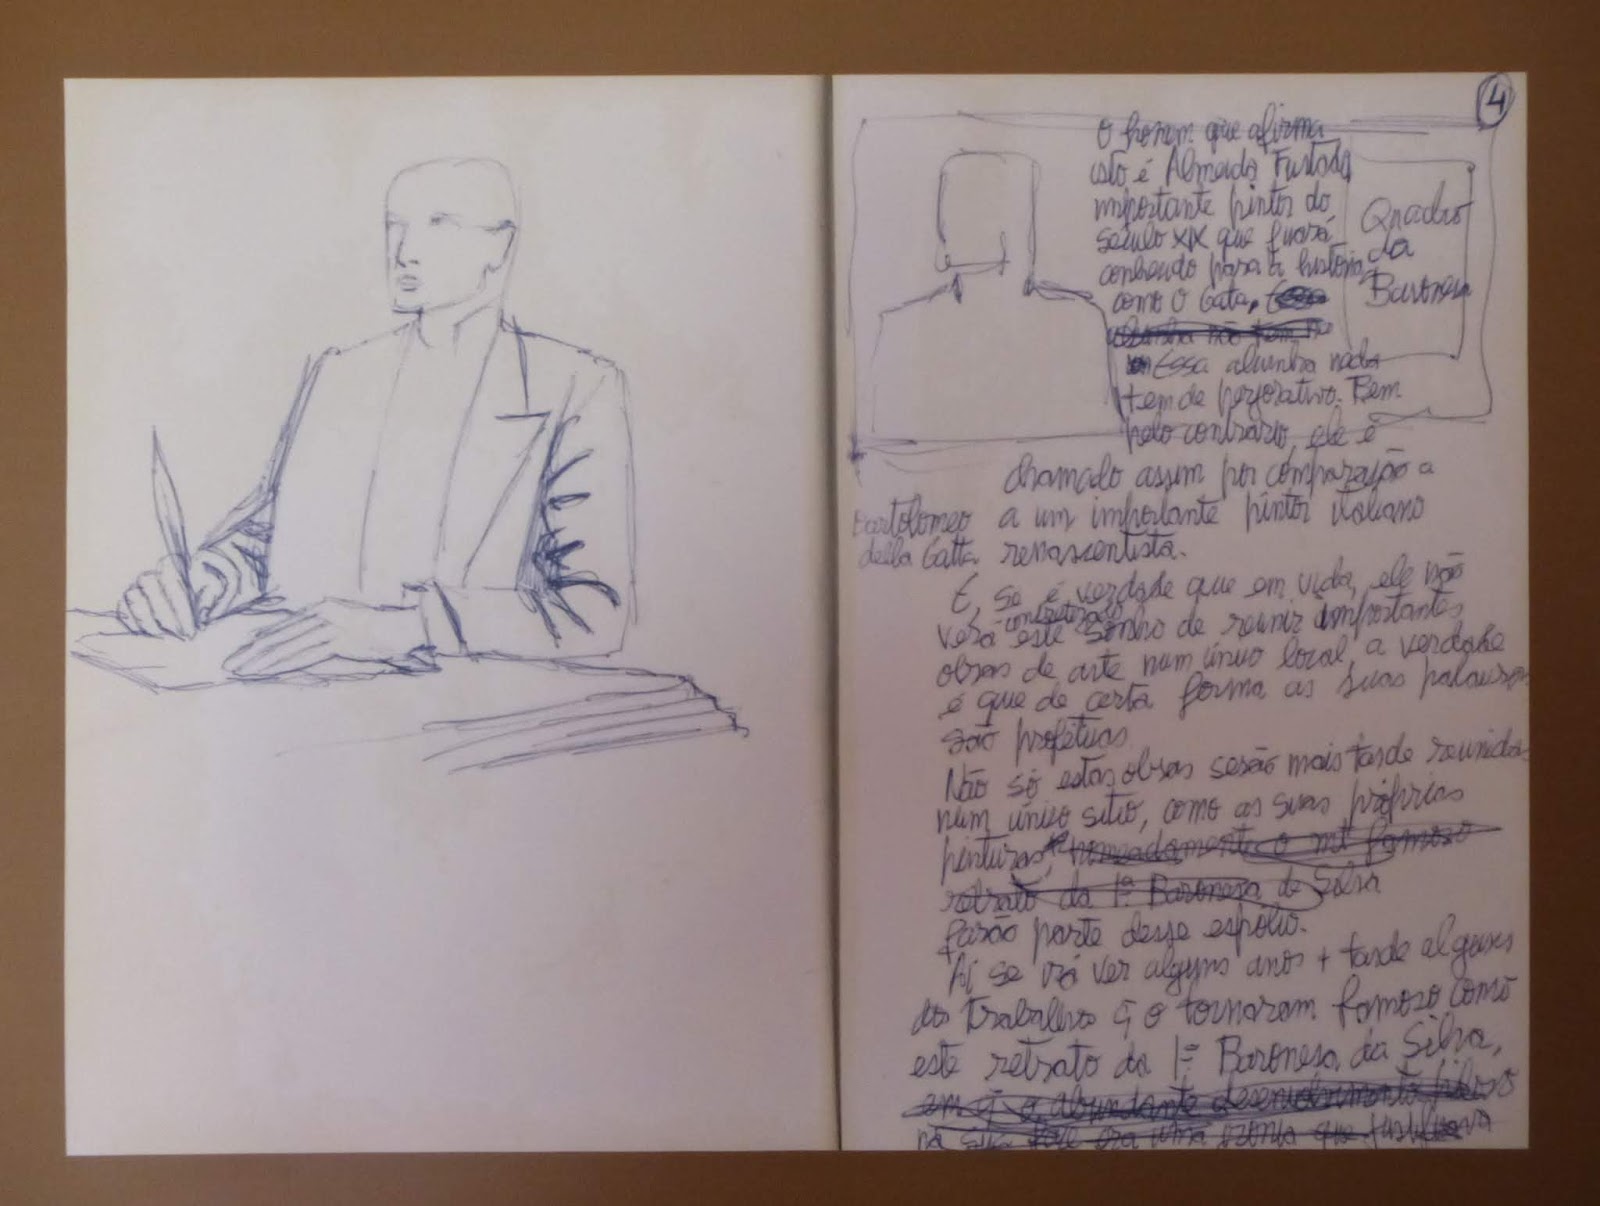 4
O homem que afirma
isto é Almeida Furtado
importante pintor do
século XIX que ficará
conhecido para a história
como O Gata,
Essa alcunha nada
tem de perjorativo. Bem
pelo contrário, ele é
chamado assim por comparação a
a um importante pintor italiano
renascentista.
Bartolomeo
della Gatta
Quadro
da
Baronesa
E, se é verdade que em vida, ele não
verá concretizado este sonho de reunir importantes
obras de arte num único local, a verdade
é que de certa forma as suas palavras
são proféticas
Não só estas obras serão mais tarde reunidas
num único sítio, como as suas próprias
pinturas, nomeadamente o mt famoso
retrato da 1ª Baronesa de Silva
farão parte desse espólio.
Aí se irá ver alguns anos + tarde alguns
dos trabalhos q̃ o tornaram famoso como
este retrato da 1ª Baronesa da Silva,
em q̃ o abundante desenvolvimento
na era uma que